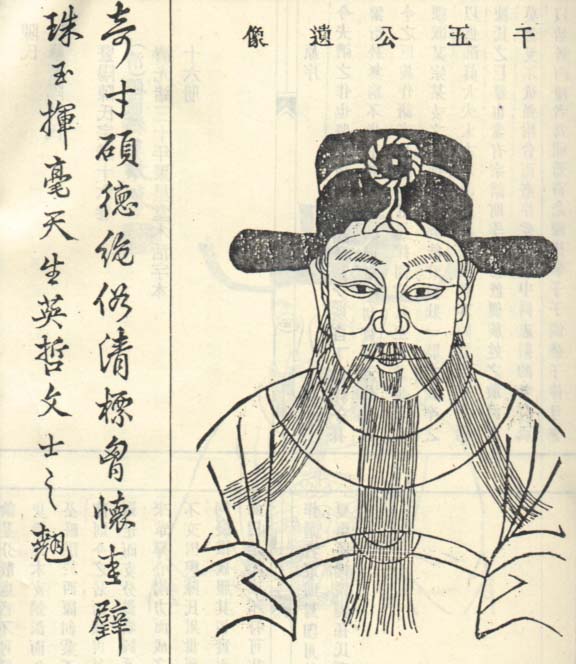 千五公遺像
奇才碩德絶俗清標胷懷圭璧
珠玉揮毫天生英哲文士之翹